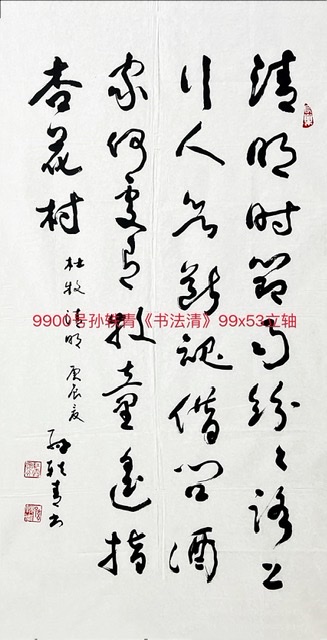 清明时节雨纷々路上
行人欲断魂借问酒
家何处有牧童遥指
杏花村
杜牧清明 庚辰夏
孙轶青书
9900号孙轶青《书法清》99x53立轴